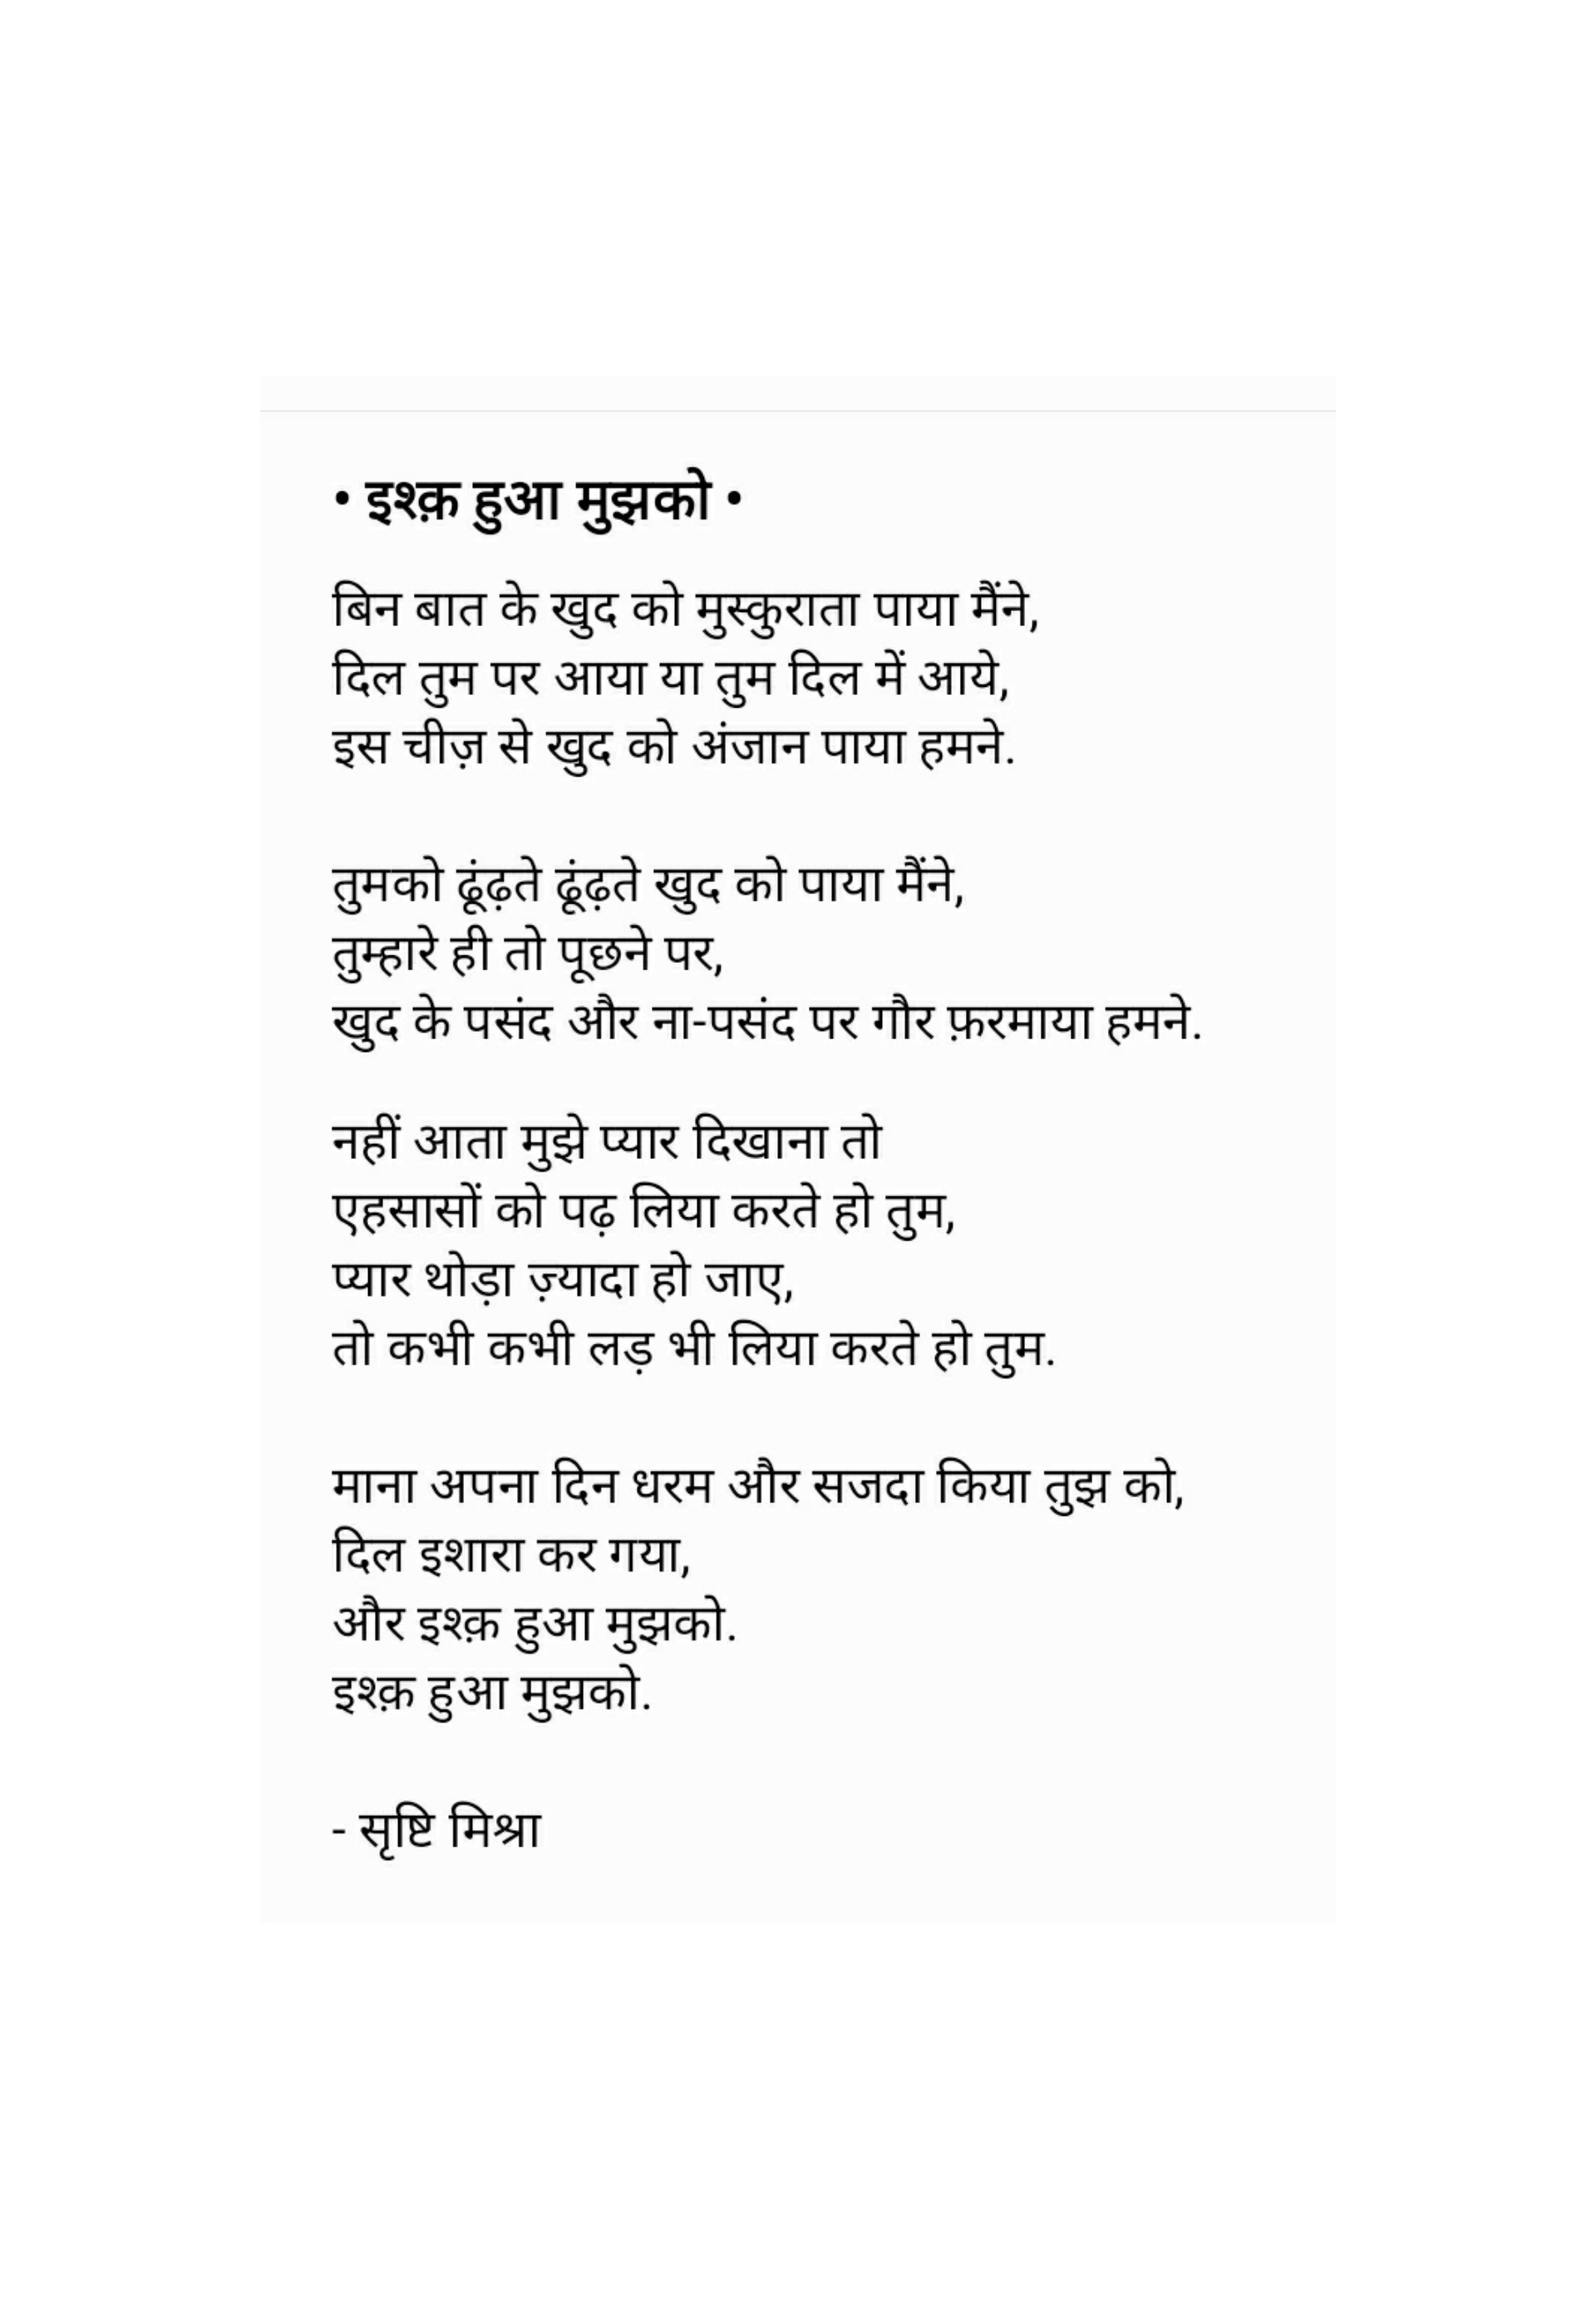 • इश्क़ हुआ मुझको •
बिन बात के खुद को मुस्कुराता पाया मैंने,
दिल तुम पर आया या तुम दिल में आये,
इस चीज़ से खुद को अंजान पाया हमने.
तुमको ढूंढ़ते ढूंढ़ते खुद को पाया मैंने,
तुम्हारे ही तो पूछने पर,
खुद के पसंद और ना-पसंद पर गौर फ़रमाया हमने.
नहीं आता मुझे प्यार दिखाना तो
एहसासों को पढ़ लिया करते हो तुम,
प्यार थोड़ा ज़्यादा हो जाए,
तो कभी कभी लड़ भी लिया करते हो तुम.
माना अपना दिन धरम और सजदा किया तुझ को,
दिल इशारा कर गया,
और इश्क़ हुआ मुझको.
इश्क़ हुआ मुझको.
- सृष्टि मिश्रा